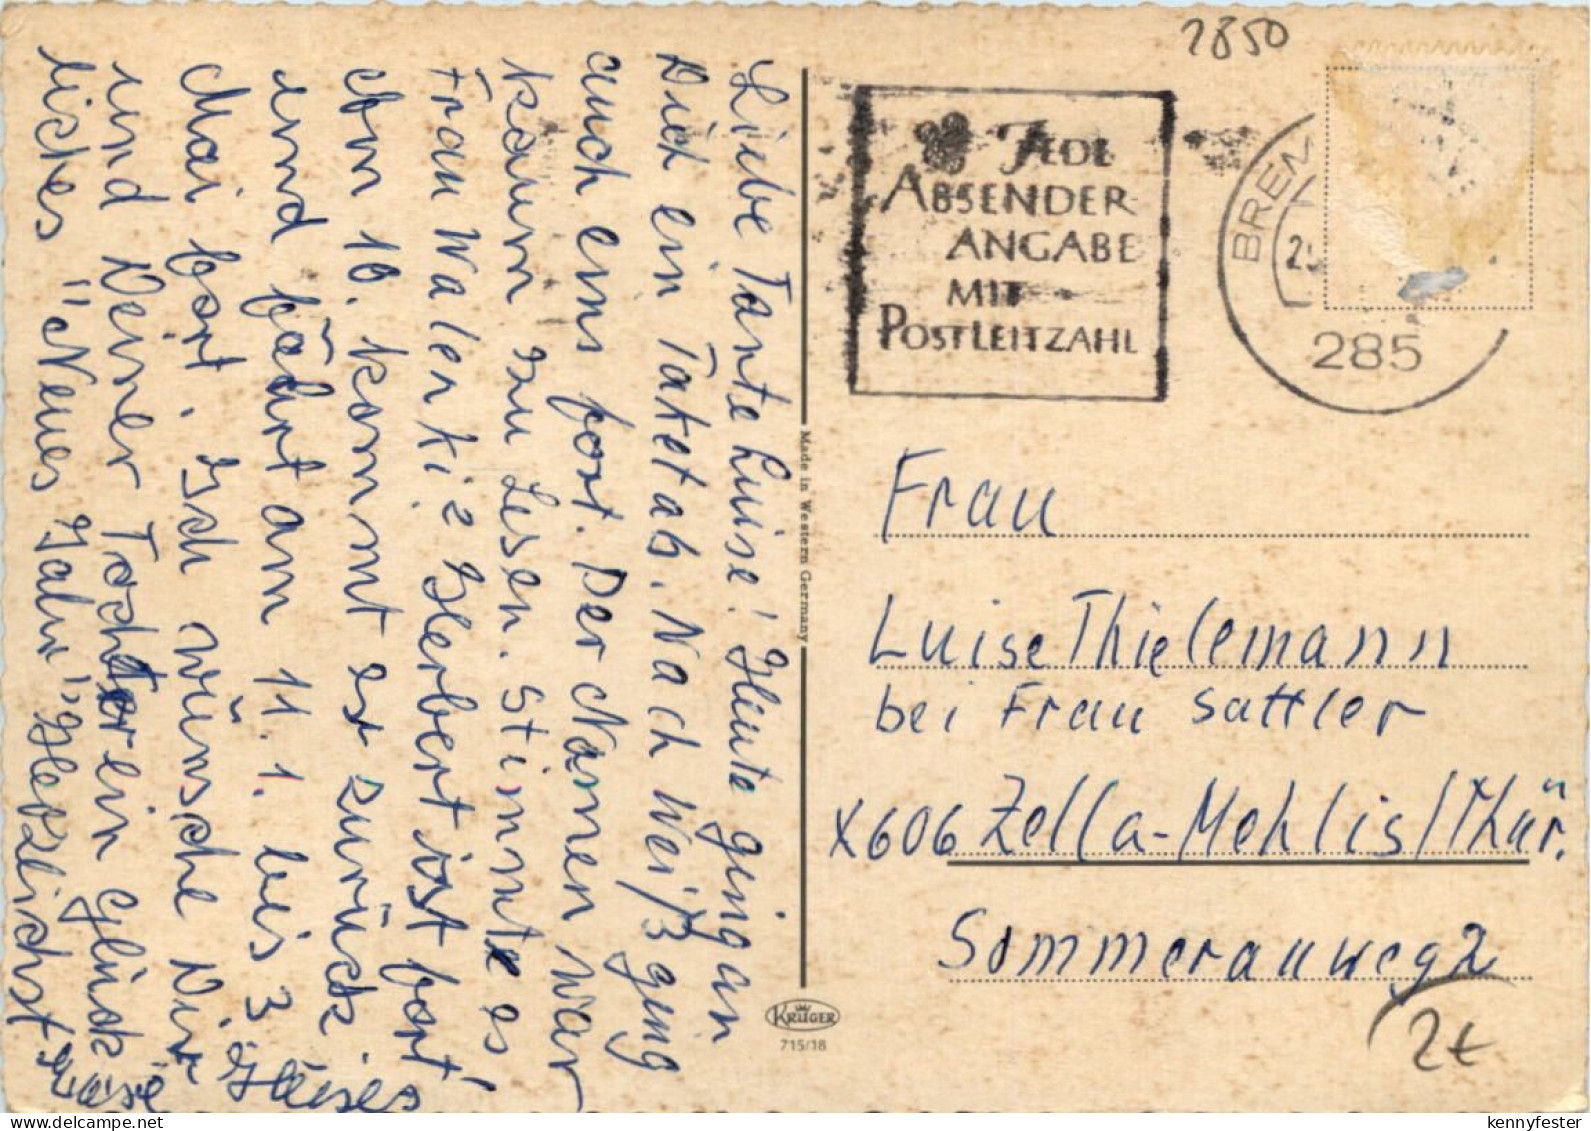 2850
Jede
Absender
angabe
mit
Postleitzahl
BREM
285
Liebe Tante Luise! Heute ging an
Dich ein Paket ab. Nach Weiß ging
auch eins fort. Der Namen war
kaum zu Lesen. Stimmte es
Frau Walerki? Herbert ist fort!
Am 10. kommt er zurück
und fährt am 11. 1. bis 3
Mai fort. Ich wünsche Dir
und Deiner Tochter ein glück
liches "Neues Jahr" Herzlichst
Made in Western Germany
Frau
Luise Thielemann
bei Frau Sattler
X606 Zella-Mehlis/Thür.
Sommerauweg 2
KRÜGER
715/18
2€
kennyfester